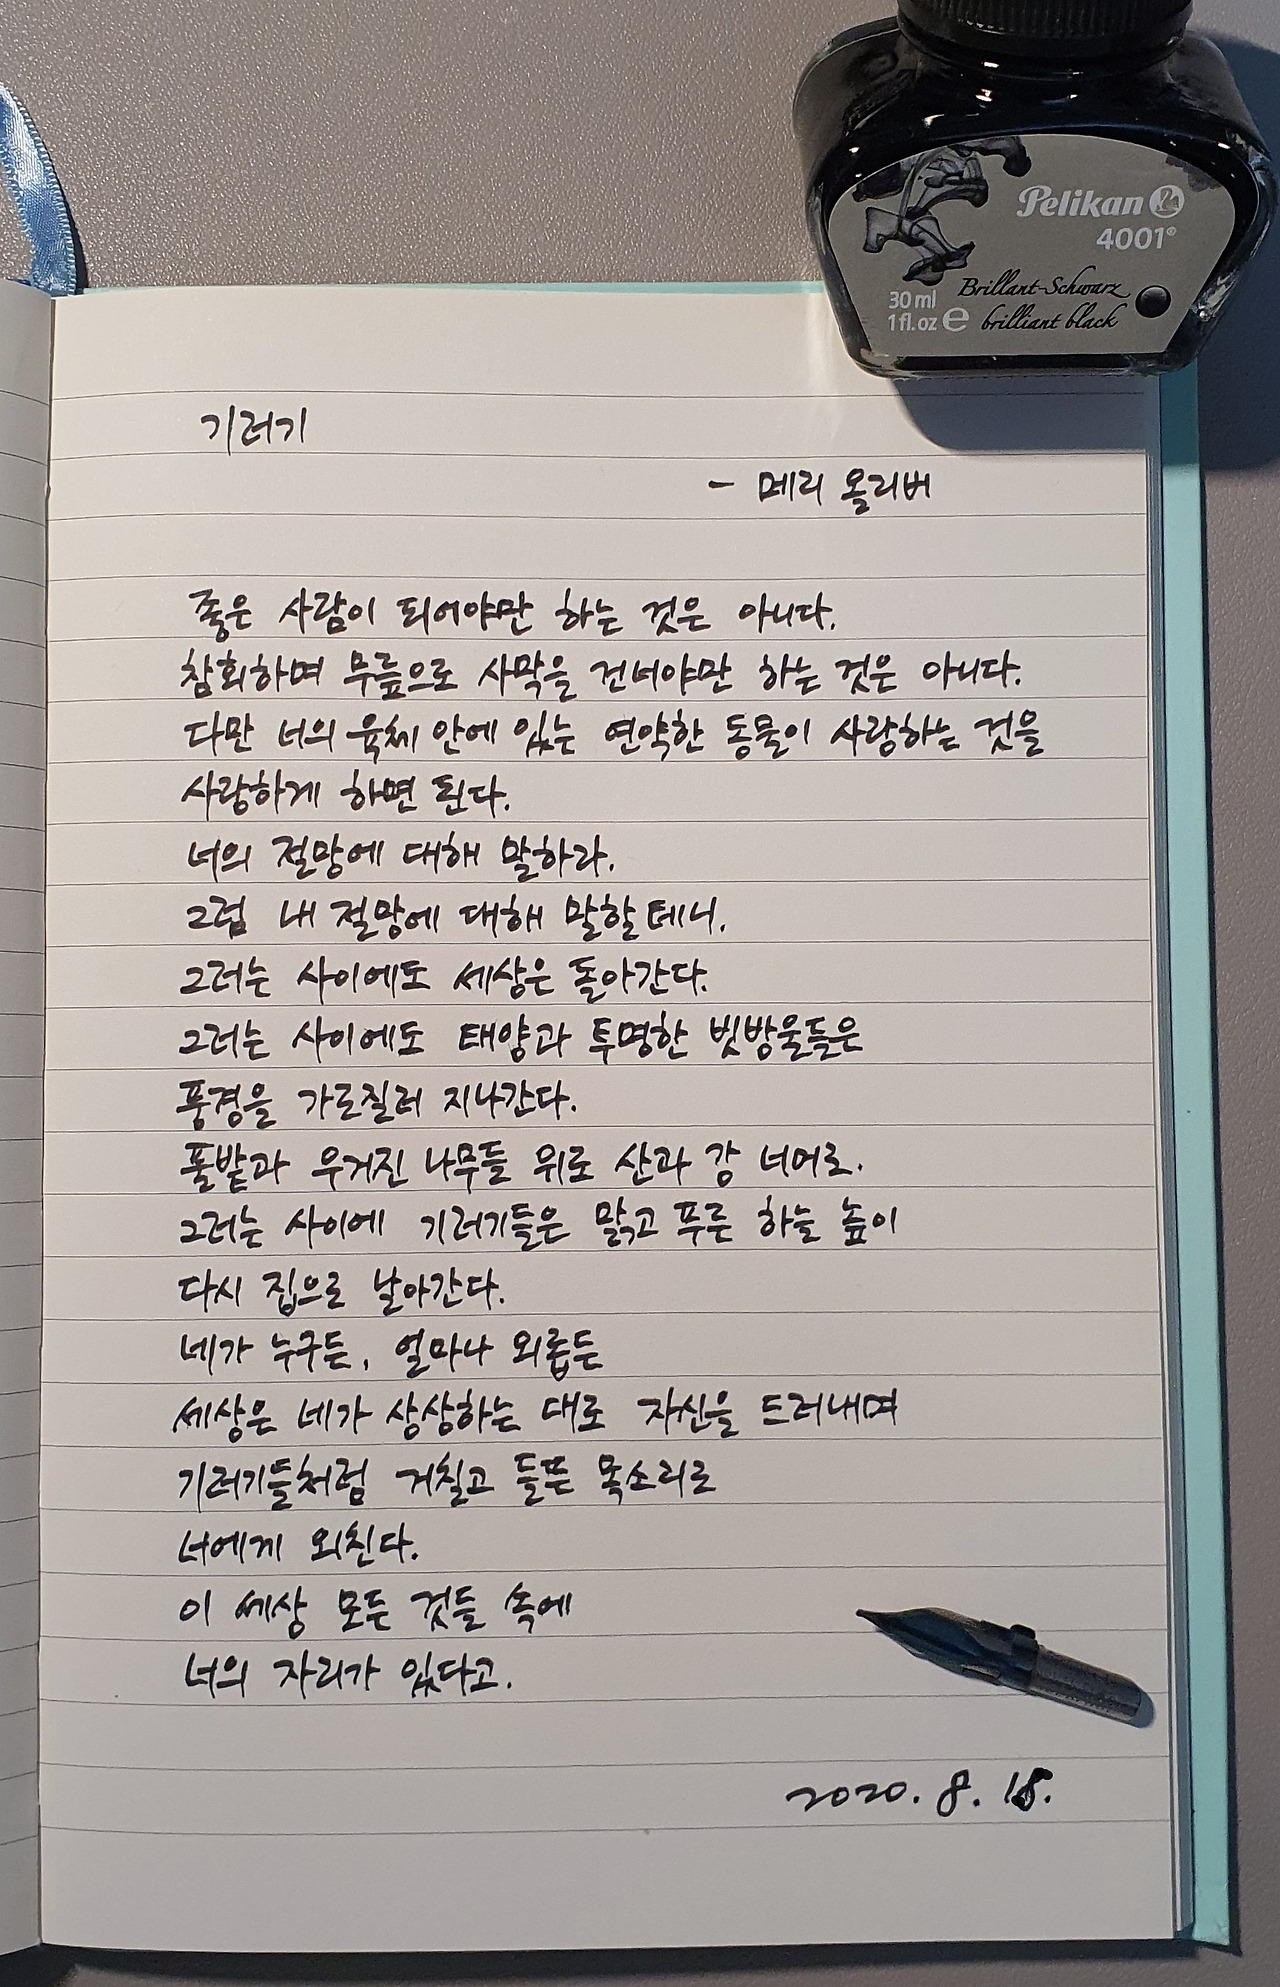 Pelikan
4001®
Brillant-Schwarz
brilliant black
30 ml
1 fl. oz e
기러기
- 메리 올리버
좋은 사람이 되어야만 하는 것은 아니다.
참회하며 무릎으로 사막을 건너야만 하는 것은 아니다.
다만 너의 육체 안에 있는 연약한 동물이 사랑하는 것을
사랑하게 하면 된다.
너의 절망에 대해 말하라.
그럼 내 절망에 대해 말할테니.
그러는 사이에도 세상은 돌아간다.
그러는 사이에도 태양과 투명한 빗방울들은
풍경을 가로질러 지나간다.
풀밭과 우거진 나무들 위로 산과 강 너머로.
그러는 사이에 기러기들은 맑고 푸른 하늘 높이
다시 집으로 날아간다.
네가 누구든, 얼마나 외롭든
세상은 네가 상상하는 대로 자신을 드러내며
기러기들처럼 거칠고 들뜬 목소리로
너에게 외친다.
이 세상 모든 것들 속에
너의 자리가 있다고.
2020. 8.